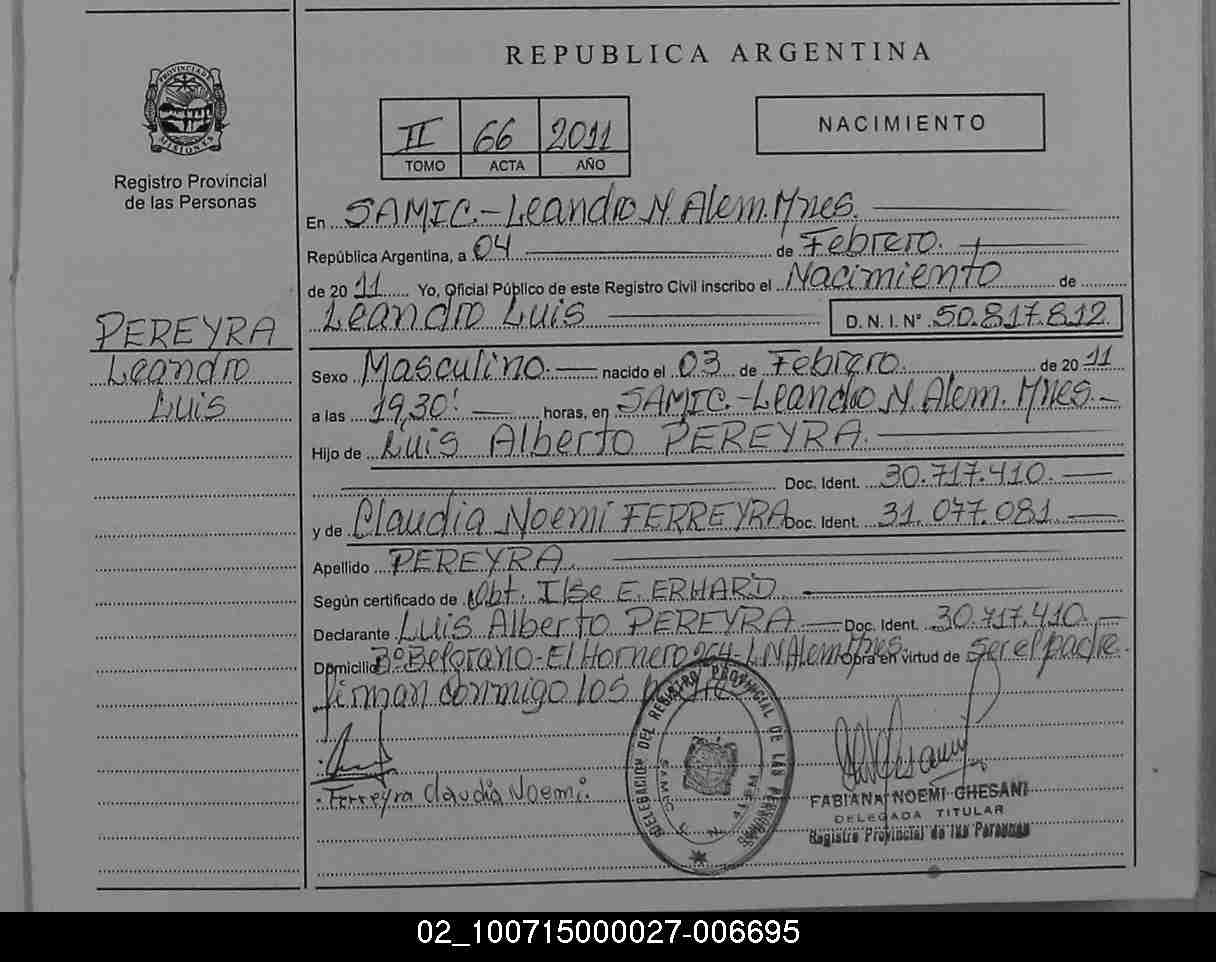 REPUBLICA ARGENTINA
PROVINCIA DE MISIONES
Registro Provincial
de las Personas
II 66 2011
TOMO ACTA AÑO
NACIMIENTO
En SAMIC.-Leandro N Alem.Mnes.
República Argentina, a 04 de Febrero.
de 2011 Yo, Oficial Público de este Registro Civil inscribo el Nacimiento de
Leandro Luis D.N.I.Nº 50.817.812
PEREYRA
Leandro
Luis
Sexo Masculino. nacido el 03 de Febrero. de 2011
a las 19,30' horas, en SAMIC.-Leandro N Alem. Mnes.-
Hijo de Luis Alberto PEREYRA.
Doc. Ident. 30.717.410.
y de Claudia Noemi FERREYRA Doc. Ident. 31.077.081.
Apellido PEREYRA
Según certificado de Obt. Ilse E. ERHARD
Declarante Luis Alberto PEREYRA Doc. Ident. 30.717.410.
Domicilio Bº Belgrano-El Hornero 264-L N Alem Mnes. Obra en virtud de ser el padre.
firman conmigo los
Ferreyra Claudia Noemi.
DELEGACION DEL REGISTRO PROVINCIAL DE LAS PERSONAS
SAMIC
FABIANA NOEMI GHESANI
DELEGADA TITULAR
Registro Provincial de las Personas
02_100715000027-006695